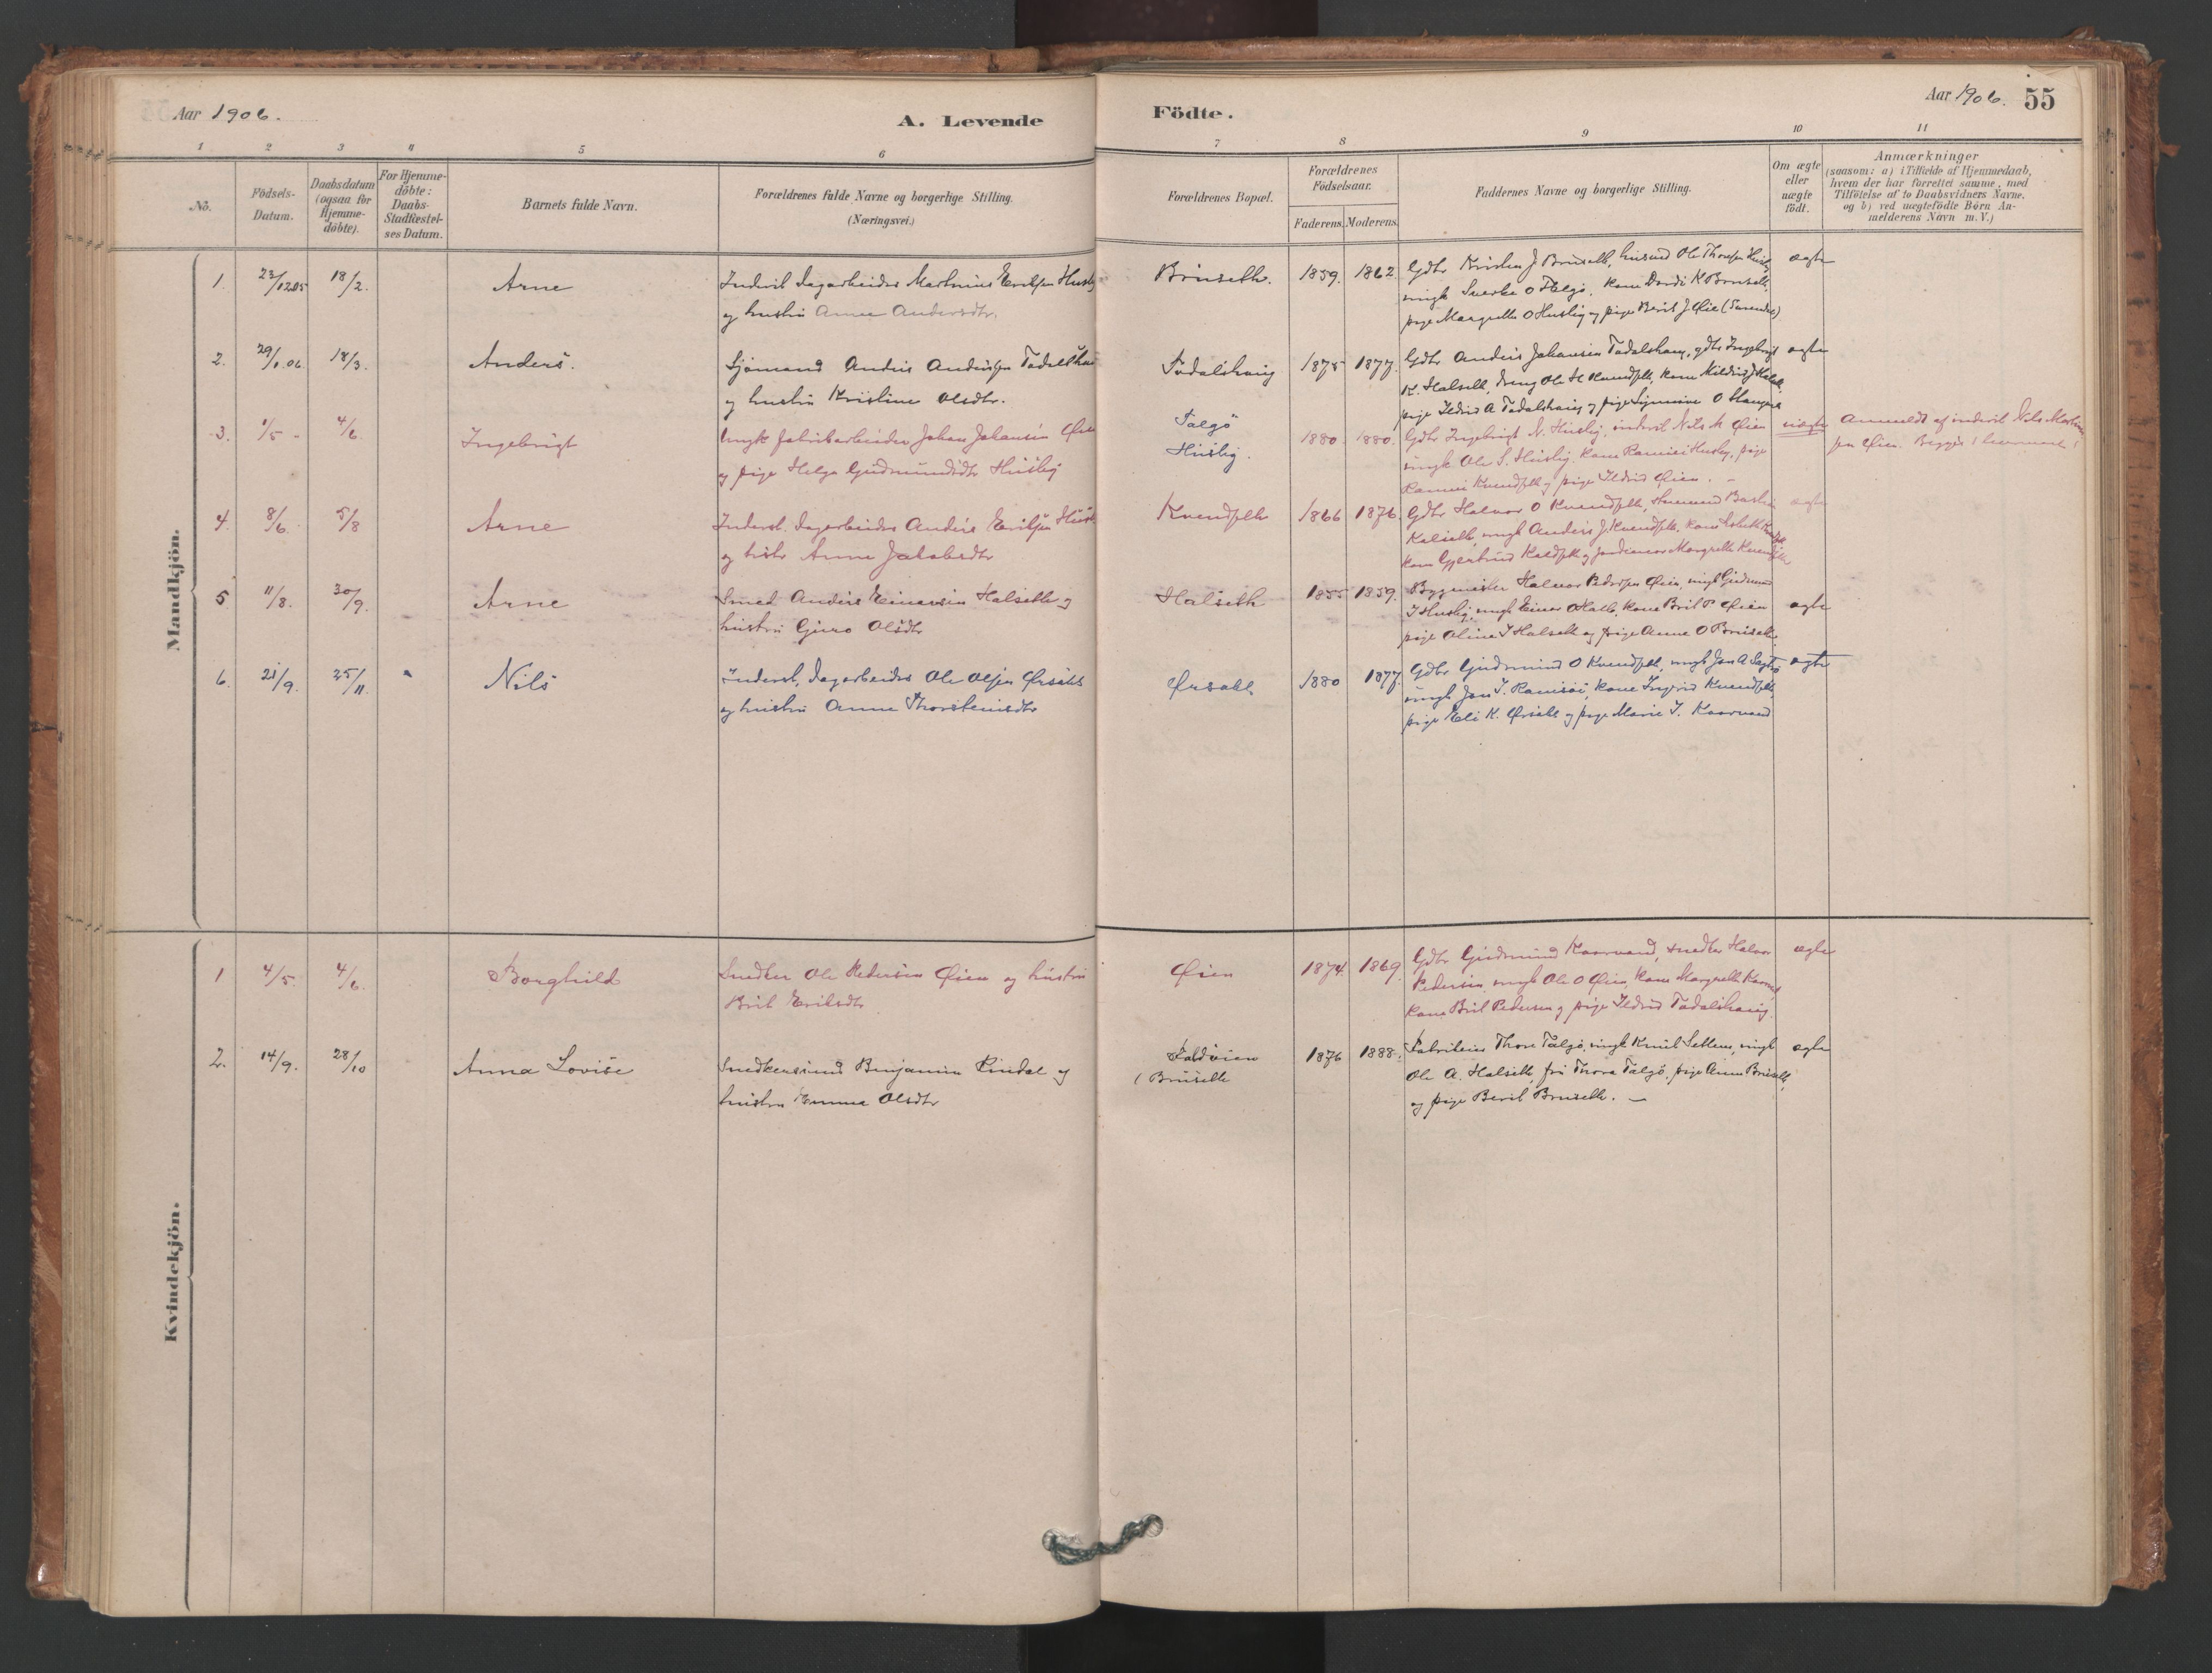 Aar 1906.
A. Levende
Födte.
Aar 1906.
55
1 2 3 4 5 6 7 8 9 10 11
No.
Födsels-
Datum.
Daabsdatum
(ogsaa for
Hjemme-
döbte).
For Hjemme-
döbte:
Daabs-
Stadfæstel-
ses Datum.
Barnets fulde Navn.
Forældrenes fulde Navne og borgerlige Stilling.
(Næringsvei.)
Forældrenes Bopæl.
Forældrenes
Födselsaar.
Faderens. Moderens.
Faddernes Navne og borgerlige Stilling.
Om ægte
eller
uægte
födt.
Anmærkninger
(saasom: a) i Tilfælde af Hjemmedaab,
hvem der har forrettet samme, med
Tilföielse af to Daabsvidners Navne,
og b) ved uægtefödte Börn An-
melderens Navn m. V.)
Mandkjön.
1. 23/12.05 18/2. Arne
Inderst Dagarbeider Martinus Eriksen Husby
og hustru Anne Andersdtr.
Brüseth. 1859. 1862.
Gdbr Kristen J. Brüseth, husmd Ole Thoresen Husby
ungk Sverke O Telgö, kone Dordi K Brüseth,
pige Margrethe O Husby og pige Berit J. Öie (Surendal)
ægte
2. 29/1.06 18/3. Anders.
Sjömand Anders Andersen Todalshaug
og hustru Kristine Olsdtr.
Todalshaug 1875 1877.
Gdbr Anders Johansen Todalshaug, gdbr Ingebrigt
K. Halseth, dreng Ole H Kvendseth, kone Mildrid J Halseth,
pige Ildrid A Todalshaug og pige Synnöve O
ægte
3. 1/5 4/6. Ingebrigt
Ungk fabrikarbeider Johan Johansen Öien
og pige Helga Gudmundsdtr Husby
Talgö
Husby. 1880. 1880.
Gdbr Ingebrigt N. Husby, inderst Nils M Öien
ungk Ole S. Husby, kone Rannei Husby, pige
Rannei Kvendseth og pige Ildrid Öien. -
uægte
Anmeldt af inderst Nils Martin
sen Öien. Begges 1
4. 8/6. 5/8 Arne
Inderst. Dagarbeider Anders Eriksen Husby
og hstr Anne Jakobsdtr
Kvendseth 1866 1876
Gdbr Halvor O Kvendseth,
Halseth, ungk Anders J. Kvendseth, kone
kone Gjertrud Kaldseth og jordemor Margrethe Kvendseth
ægte
5. 11/8. 30/9. Arne
Smed Anders Einersen Halseth og
hustru Guro Olsdtr
Halseth 1855 1859.
Bygmester Halvor Pedersen Öien, ungk Gudmund
I Husby, ungk Einar O Hals, kone Brit P Öien
pige Oline I Halseth og pige Anne O Brüseth.
ægte
6. 21/9. 25/11. Nils
Inderst, Dagarbeider Ole Olsen Örsahl
og hustru Anne Thorsteinsdtr
Örsahl 1880 1877.
Gdbr Gudmund O Kvendseth, ungk Jon A
ungk Jon I. Kone Ingrid Kvendseth
pige Eli K. Örsahl og pige Marie I. Kaarvand
ægte
Kvindekjön.
1 4/5. 4/6. Borghild
Snedker Ole Pedersen Öien og hustru
Brit Eriksdtr
Öien 1874. 1869.
Gdbr Gudmund Kaarvand, snedker Halvor
Pedersen, ungk Ole O Öien, kone Margrethe
kone Brit Pedersen og pige Ildrid Todalshaug.
ægte
2. 14/9. 28/10 Anna Lovise
Snedkersvend Benjamin Rindal og
hustru Emma Olsdtr
(Brüseth 1876 1888.
Fabrikeier Thore Talgö, ungk Knut Settem, ungk
Ole A. Halseth, fru Thora Talgö, pige Anne Brüseth,
og pige Berit Brüseth. -
ægte